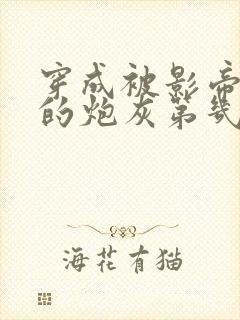 穿成被影帝
的炮灰第几
海花有猫